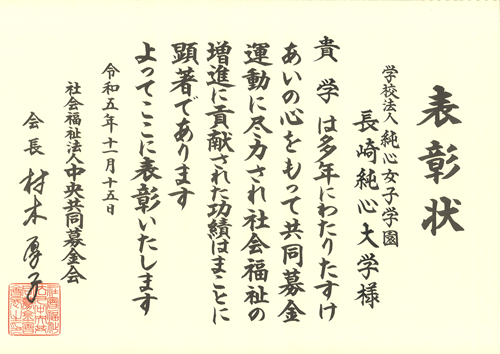 表彰状
学校法人 純心女子学園
長崎純心大学様
貴学は多年にわたりたすけ
あいの心をもって共同募金
運動に尽力され社会福祉の
増進に貢献された功績はまことに
顕著であります
よってここに表彰いたします
令和五年十一月十五日
社会福祉法人中央共同募金会
会長 村木厚子